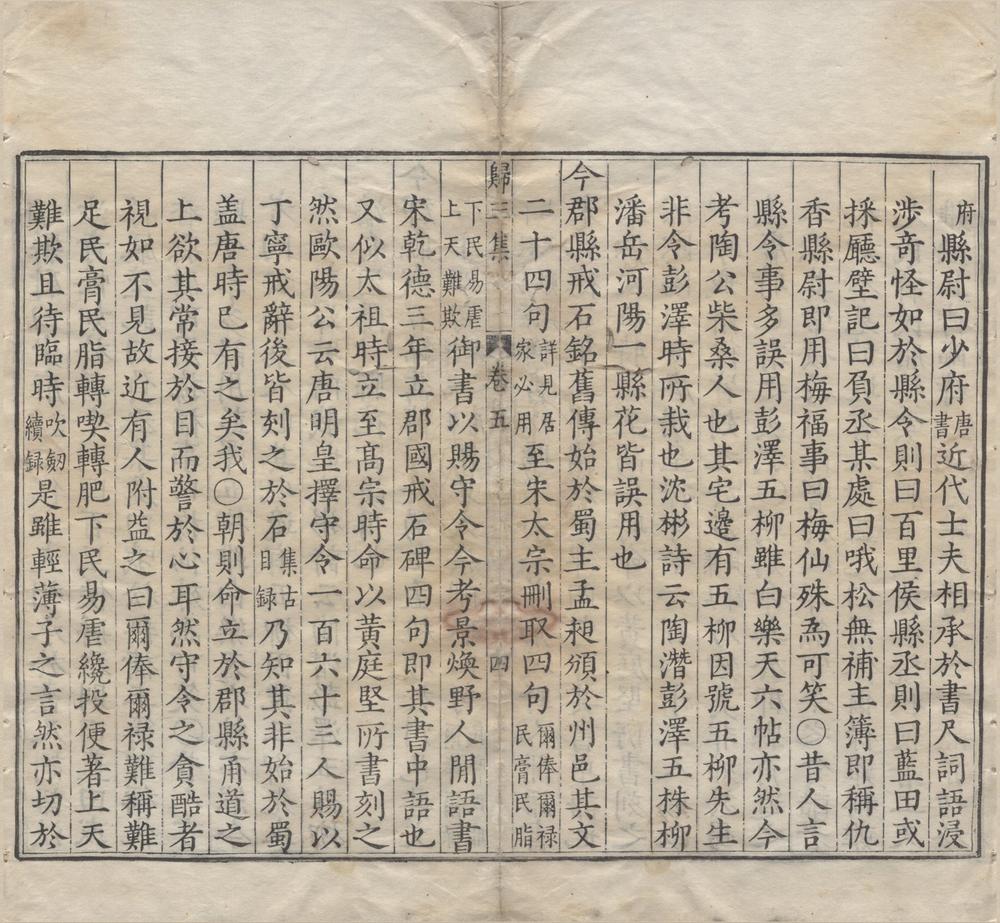 府縣尉曰少府唐書近代士夫相承於書尺詞語浸
涉奇怪如於縣令則曰百里侯縣丞則曰藍田或
採廳壁記曰負丞某處曰哦松無補主簿即稱仇
香縣尉即用梅福事曰梅仙殊爲可笑〇昔人言
縣令事多誤用彭澤五柳雖白樂天六帖亦然今
考陶公柴桑人也其宅邊有五柳因號五柳先生
非令彭澤時所栽也沈彬詩云陶潛彭澤五株柳
潘岳河陽一縣花皆誤用也
今郡縣戒石銘舊傳始於蜀主孟昶頒於州邑其文
二十四句詳見居家必用至宋太宗刪取四句爾俸爾祿民膏民脂
歸三集 卷五 四
下民易虐上天難欺御書以賜守令今考景煥野人閒語書
宋乾德三年立郡國戒石碑四句即其書中語也
又似太祖時立至高宗時命以黃庭堅所書刻之
然歐陽公云唐明皇擇守令一百六十三人賜以
丁寧戒辭後皆刻之於石集古目録乃知其非始於蜀
盖唐時已有之矣我〇朝則命立於郡縣甬道之
上欲其常接於目而警於心耳然守令之貪酷者
視如不見故近有人附益之曰爾俸爾祿難稱難
足民膏民脂轉喫轉肥下民易虐纔投便著上天
難欺且待臨時吹劒續録是雖輕薄子之言然亦切於